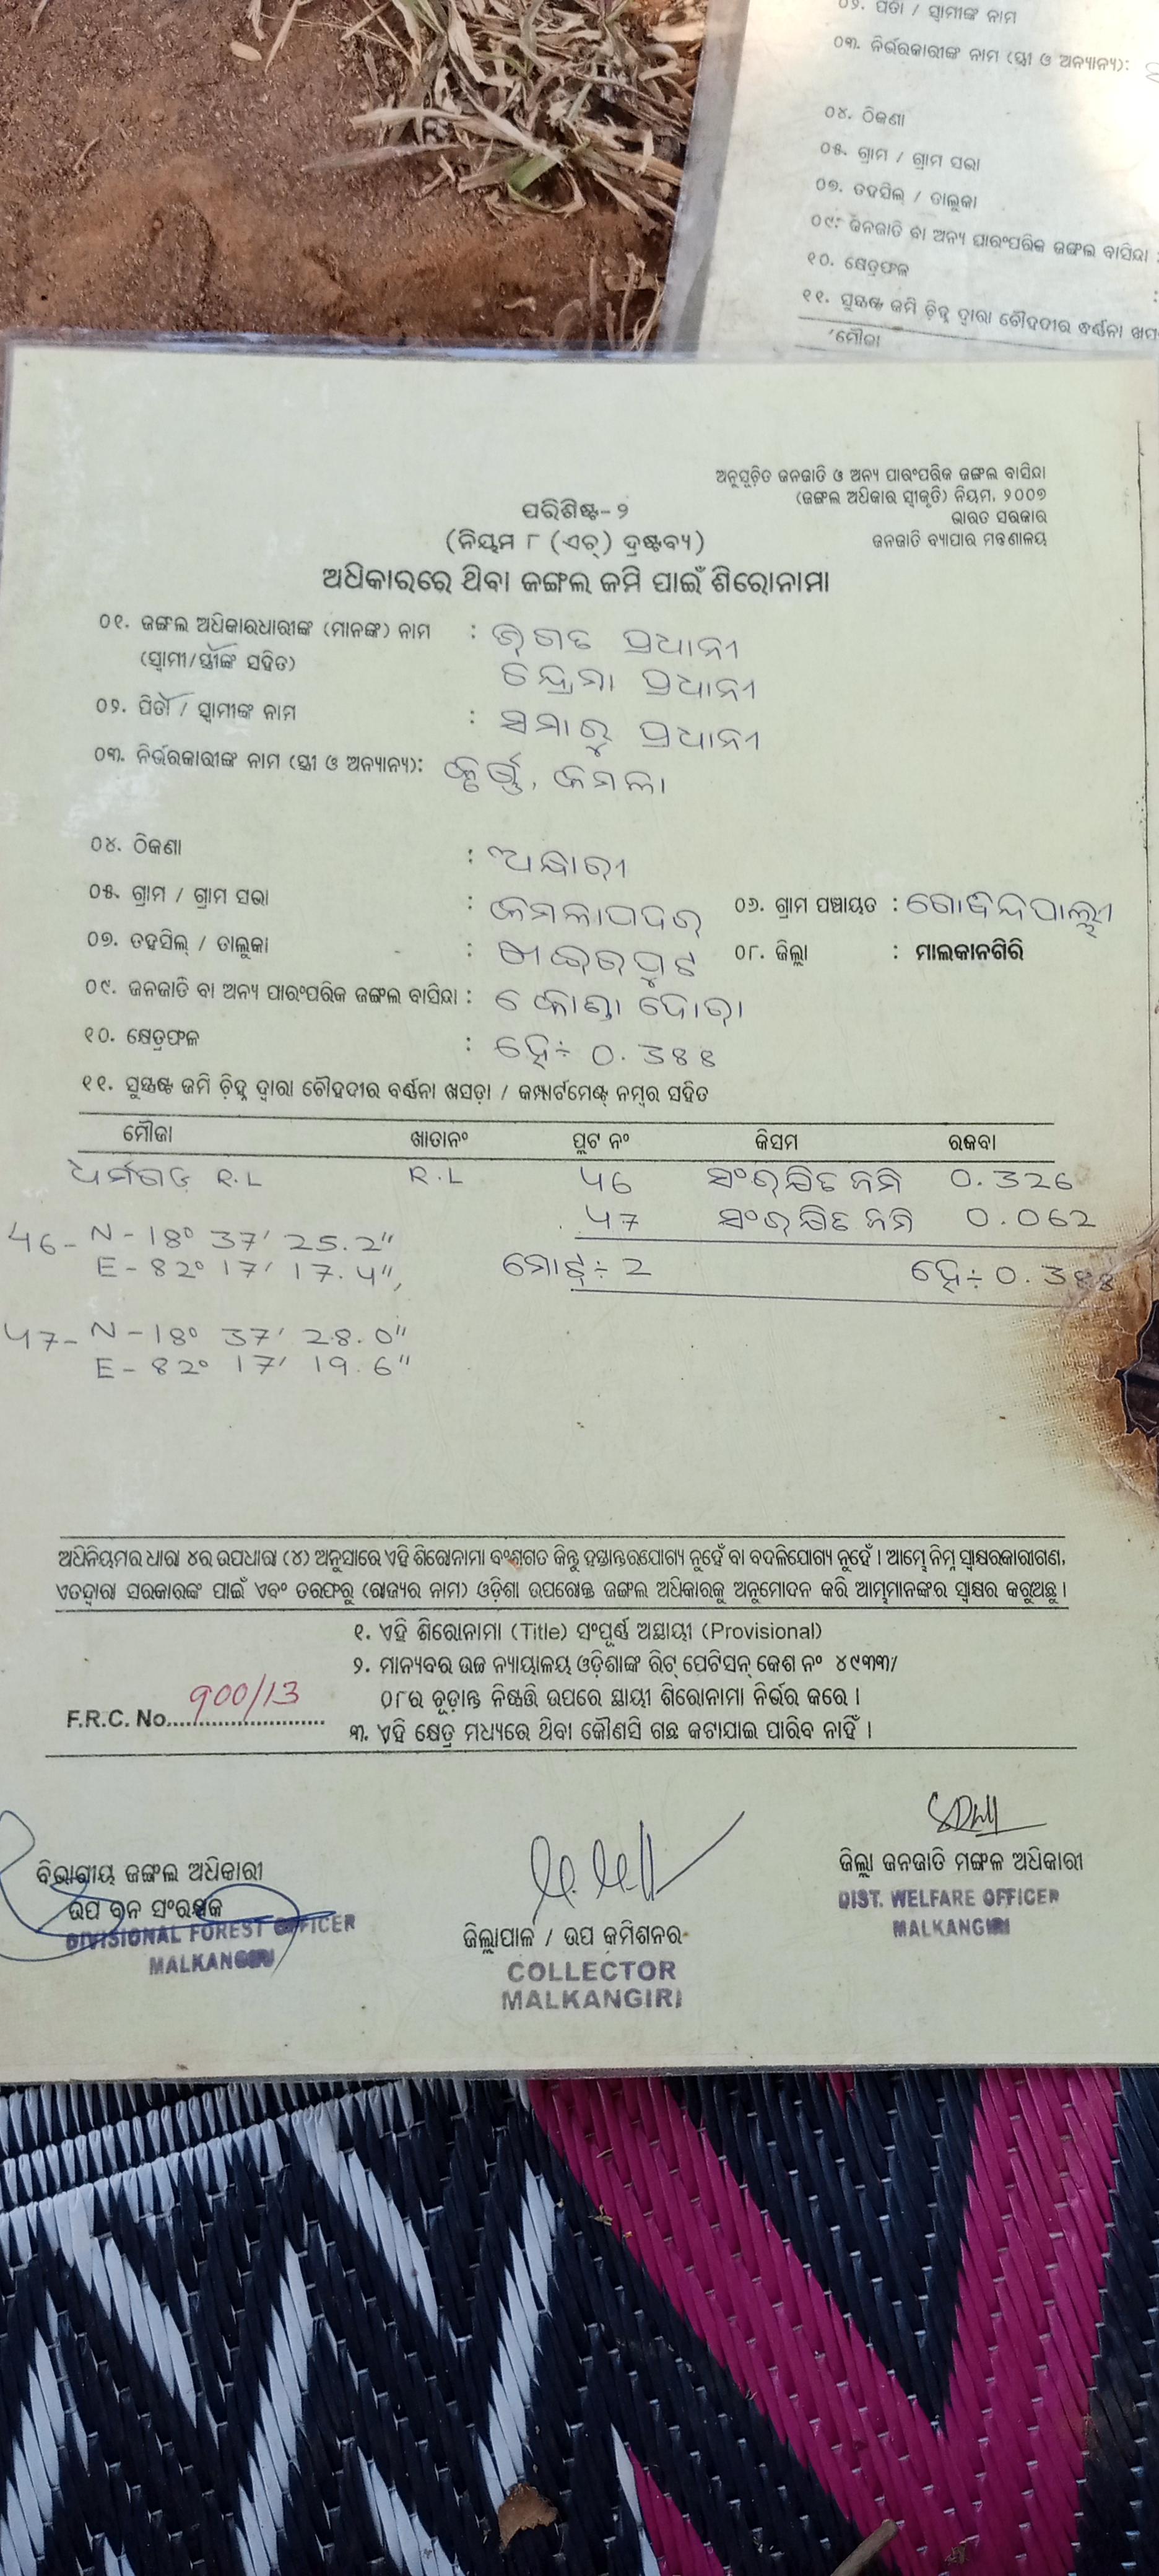 ୦୨. ପିତା / ସ୍ୱାମୀଙ୍କ ନାମ
୦୩. ନିର୍ଭରକାରୀଙ୍କ ନାମ (ସ୍ତ୍ରୀ ଓ ଅନ୍ୟାନ୍ୟ):
୦୪. ଠିକଣା
୦୫. ଗ୍ରାମ / ଗ୍ରାମ ସଭା
୦୭. ତହସିଲ୍ / ତାଲୁକା
୦୯. ଜନଜାତି ବା ଅନ୍ୟ ପାରଂପରିକ ଜଙ୍ଗଲ ବାସିନ୍ଦା :
୧୦. କ୍ଷେତ୍ରଫଳ :
୧୧. ସୁସ୍ପଷ୍ଟ ଜମି ଚିହ୍ନ ଦ୍ୱାରା ଚୌହଦୀର ବର୍ଣ୍ଣନା
ମୌଜା
ଅନୁସୂଚିତ ଜନଜାତି ଓ ଅନ୍ୟ ପାରଂପରିକ ଜଙ୍ଗଲ ବାସିନ୍ଦା
(ଜଙ୍ଗଲ ଅଧିକାର ସ୍ୱୀକୃତି) ନିୟମ, ୨୦୦୭
ଭାରତ ସରକାର
ଜନଜାତି ବ୍ୟାପାର ମନ୍ତ୍ରଣାଳୟ
ପରିଶିଷ୍ଟ-୨
(ନିୟମ ୮ (ଏଚ୍) ଦ୍ରଷ୍ଟବ୍ୟ)
ଅଧିକାରରେ ଥିବା ଜଙ୍ଗଲ ଜମି ପାଇଁ ଶିରୋନାମା
୦୧. ଜଙ୍ଗଲ ଅଧିକାରଧାରୀଙ୍କ (ମାନଙ୍କ) ନାମ : ଭଗତ ପ୍ରଧାନୀ
(ସ୍ୱାମୀ/ସ୍ତ୍ରୀଙ୍କ ସହିତ) ଚନ୍ଦ୍ରମା ପ୍ରଧାନୀ
୦୨. ପିତା / ସ୍ୱାମୀଙ୍କ ନାମ : ସମାରୁ ପ୍ରଧାନୀ
୦୩. ନିର୍ଭରକାରୀଙ୍କ ନାମ (ସ୍ତ୍ରୀ ଓ ଅନ୍ୟାନ୍ୟ): କମଳା
୦୪. ଠିକଣା :
୦୫. ଗ୍ରାମ / ଗ୍ରାମ ସଭା : କମଳାପଦର ୦୬. ଗ୍ରାମ ପଞ୍ଚାୟତ : ଗୋବିନ୍ଦପାଲ୍ଲୀ
୦୭. ତହସିଲ୍ / ତାଲୁକା : ଖଇରପୁଟ ୦୮. ଜିଲ୍ଲା : ମାଲକାନଗିରି
୦୯. ଜନଜାତି ବା ଅନ୍ୟ ପାରଂପରିକ ଜଙ୍ଗଲ ବାସିନ୍ଦା : କୋଣ୍ଡା ଦୋରା
୧୦. କ୍ଷେତ୍ରଫଳ : ହେ÷ 0.388
୧୧. ସୁସ୍ପଷ୍ଟ ଜମି ଚିହ୍ନ ଦ୍ୱାରା ଚୌହଦୀର ବର୍ଣ୍ଣନା ଖସଡ଼ା / କମ୍ପାର୍ଟମେଣ୍ଟ୍ ନମ୍ବର ସହିତ
ମୌଜା ଖାତାନଂ ପ୍ଲଟ ନଂ କିସମ ରକବା
ଧର୍ମଗଡ଼ R.L R.L 46 ସଂରକ୍ଷିତ ଜମି 0.326
47 ସଂରକ୍ଷିତ ଜମି 0.062
46- N-18° 37' 25.2"
E-82° 17' 17.4", ମୋଟ୍÷ 2 ହେ÷ 0.388
47- N-18° 37' 28.0"
E-82° 17' 19.6"
ଅଧିନିୟମର ଧାରା ୪ର ଉପଧାରା (୪) ଅନୁସାରେ ଏହି ଶିରୋନାମା ବଂଶଗତ କିନ୍ତୁ ହସ୍ତାନ୍ତରଯୋଗ୍ୟ ନୁହେଁ ବା ବଦଳିଯୋଗ୍ୟ ନୁହେଁ । ଆମ୍ଭେ ନିମ୍ନ ସ୍ୱାକ୍ଷରକାରୀଗଣ,
ଏତଦ୍ୱାରା ସରକାରଙ୍କ ପାଇଁ ଏବଂ ତରଫରୁ (ରାଜ୍ୟର ନାମ) ଓଡ଼ିଶା ଉପରୋକ୍ତ ଜଙ୍ଗଲ ଅଧିକାରକୁ ଅନୁମୋଦନ କରି ଆମ୍ଭମାନଙ୍କର ସ୍ୱାକ୍ଷର କରୁଅଛୁ ।
୧. ଏହି ଶିରୋନାମା (Title) ସଂପୂର୍ଣ୍ଣ ଅସ୍ଥାୟୀ (Provisional)
୨. ମାନ୍ୟବର ଉଚ୍ଚ ନ୍ୟାୟାଳୟ ଓଡ଼ିଶାଙ୍କ ରିଟ୍ ପେଟିସନ୍ କେଶ ନଂ ୪୯୩୩/
୦୮ର ଚୂଡ଼ାନ୍ତ ନିଷ୍ପତ୍ତି ଉପରେ ସ୍ଥାୟୀ ଶିରୋନାମା ନିର୍ଭର କରେ ।
F.R.C. No. 900/13
୩. ଏହି କ୍ଷେତ୍ର ମଧ୍ୟରେ ଥିବା କୌଣସି ଗଛ କଟାଯାଇ ପାରିବ ନାହିଁ ।
ବିଭାଗୀୟ ଜଙ୍ଗଲ ଅଧିକାରୀ
ଉପ ବନ ସଂରକ୍ଷକ
DIVISIONAL FOREST OFFICER
MALKANGIRI
ଜିଲ୍ଲାପାଳ / ଉପ କମିଶନର
COLLECTOR
MALKANGIRI
ଜିଲ୍ଲା ଜନଜାତି ମଙ୍ଗଳ ଅଧିକାରୀ
DIST. WELFARE OFFICER
MALKANGIRI